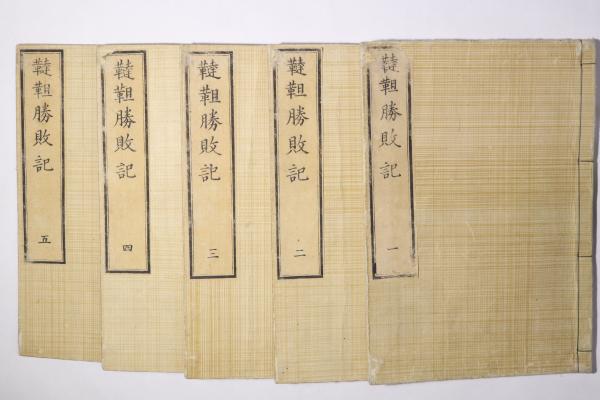 韃靼勝敗記 一
韃靼勝敗記 二
韃靼勝敗記 三
韃靼勝敗記 四
韃靼勝敗記 五